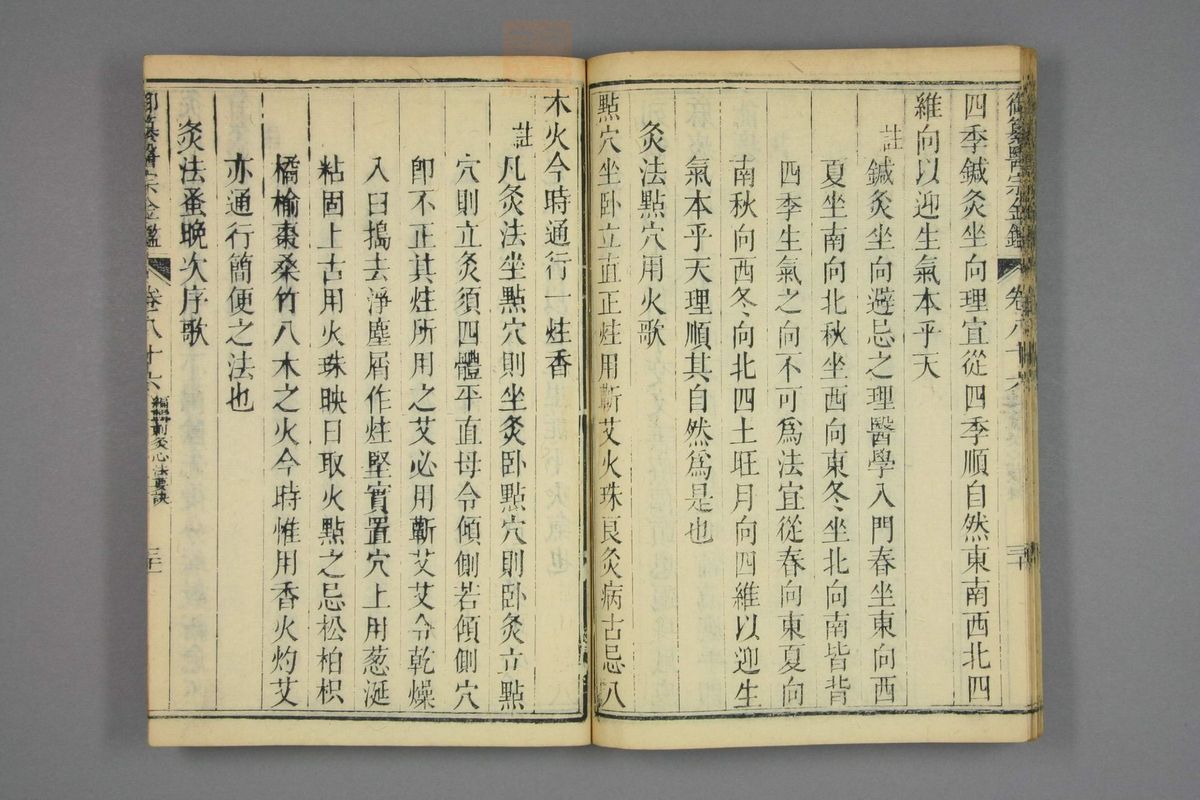 御纂醫宗金鑑 卷八十六 三十
四季鍼灸坐向理宜從四季順自然東南西北四
維向以迎生氣本乎天
註鍼灸坐向避忌之理醫學入門春坐東向西
夏坐南向北秋坐西向東冬坐北向南皆背
四季生氣之向不可為法宜從春向東夏向
南秋向西冬向北四土旺月向四維以迎生
氣本乎天理順其自然為是也
灸法點穴用火歌
點穴坐卧立直正炷用蘄艾火珠良灸病古忌八
木火今時通行一炷香
註凡灸法坐點穴則坐灸卧點穴則卧灸立點
穴則立灸須四體平直母令傾側若傾側穴
卽不正其炷所用之艾必用蘄艾艾令乾燥
入臼搗去淨塵屑作炷堅實置穴上用葱涎
粘固上古用火珠映日取火點之忌松柏枳
橘榆棗桑竹八木之火今時惟用香火灼艾
亦通行簡便之法也
灸法蚤晚次序歌
御纂醫宗金鑑 卷八十六 編輯刺灸心法要訣